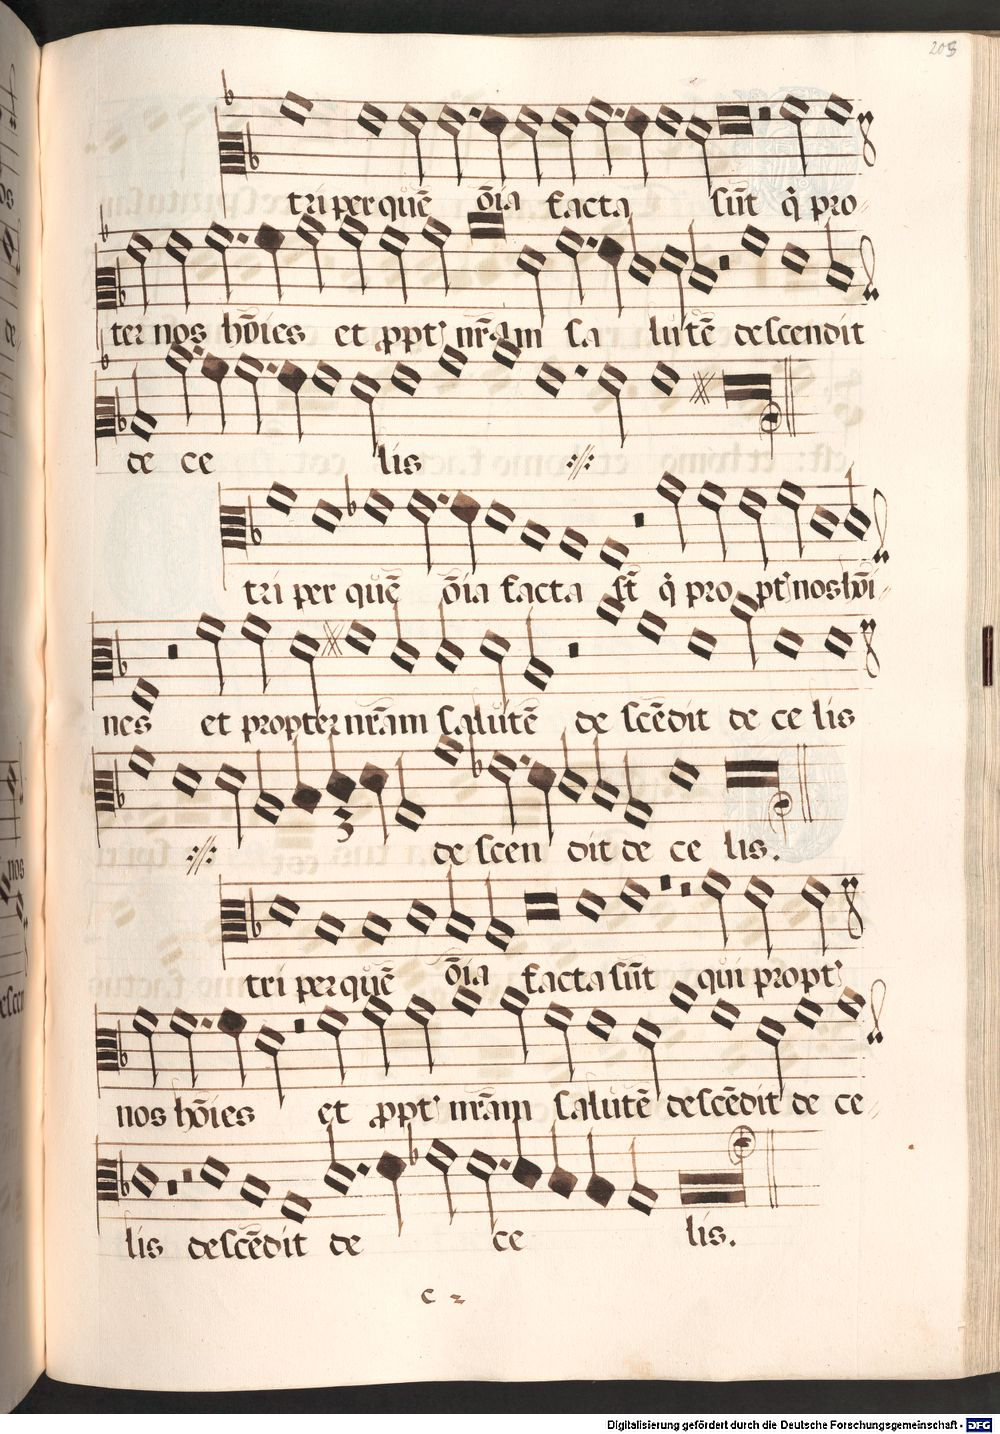 203
tri per quē ōīa facta sūt q̇ pro
ter nos hōīes et ꝓpt' nr̄am salutē descendit
de ce lis
tri per quē ōīa facta st̄ q̇ propt' nos hōī
nes et propter nr̄am salutē de scēdit de ce lis
descendit de ce lis.
tri per quē ōīa facta sūt qui propt'
nos hōīes et ꝓpt' nr̄am salutē descēdit de ce
lis descēdit de ce lis.
c 2
Digitalisierung gefördert durch die Deutsche Forschungsgemeinschaft - DFG